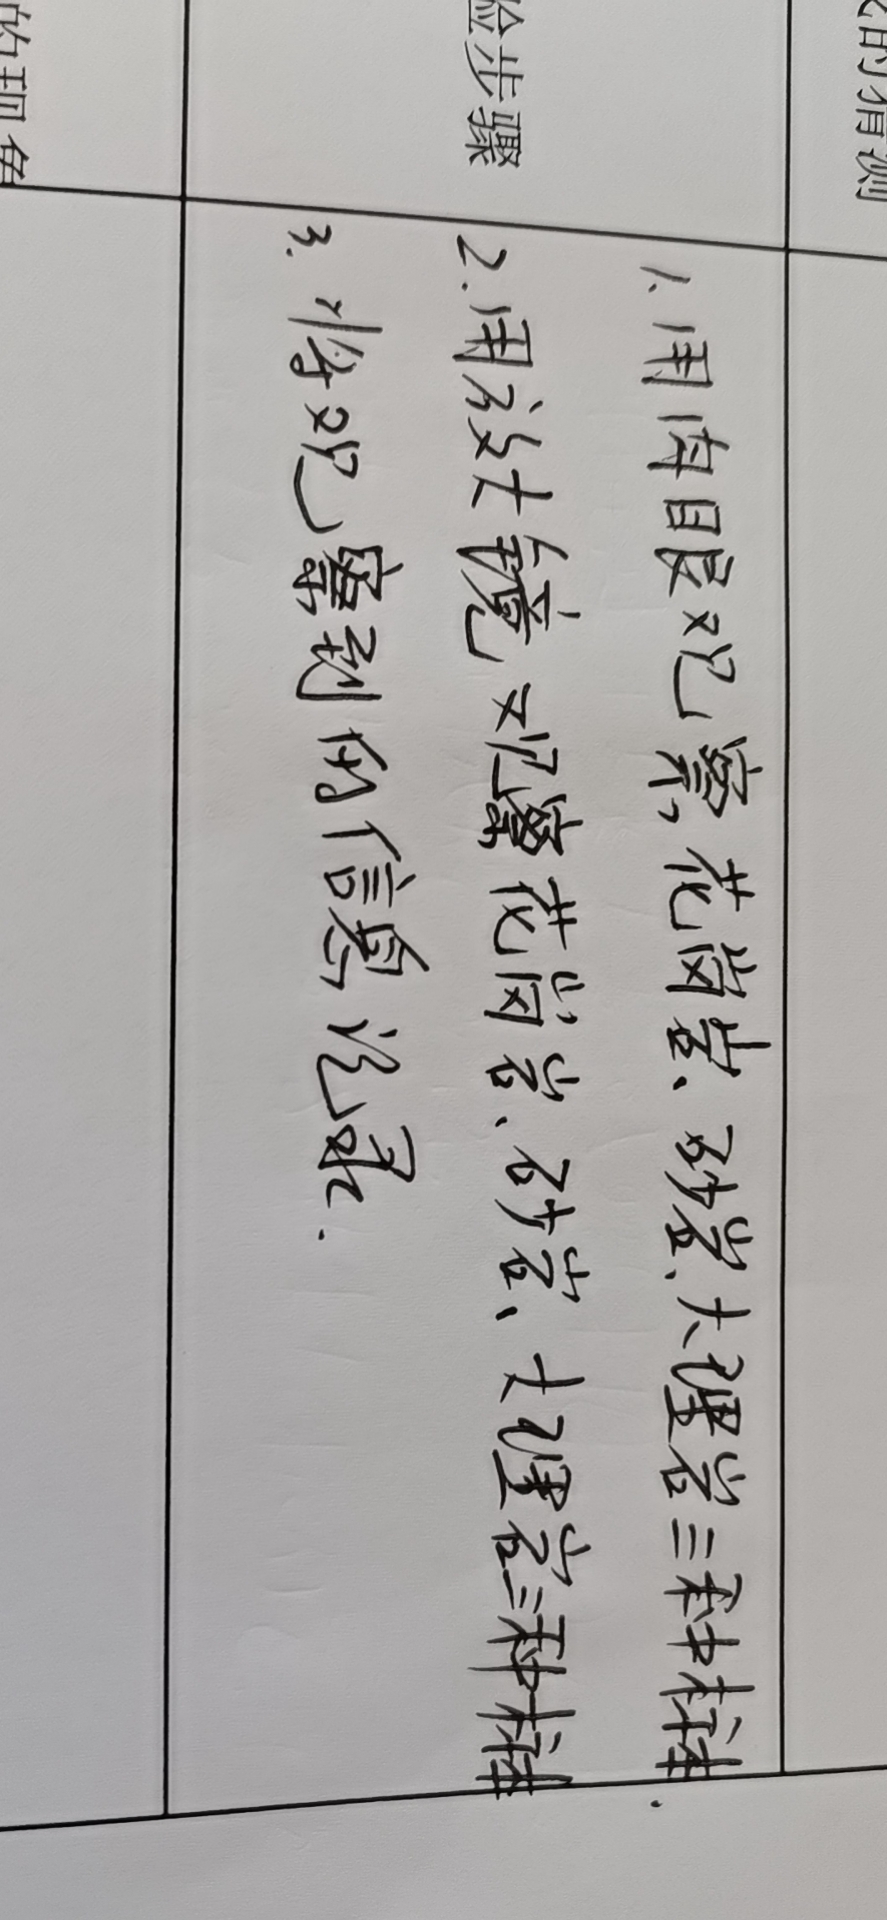 的猜测
验步骤
1、用肉眼观察,花岗岩、砂岩、大理岩三种样本.
2.用放大镜,观察花岗岩、砂岩、大理岩三种样本
3.将观察到的信息记录.
的现象